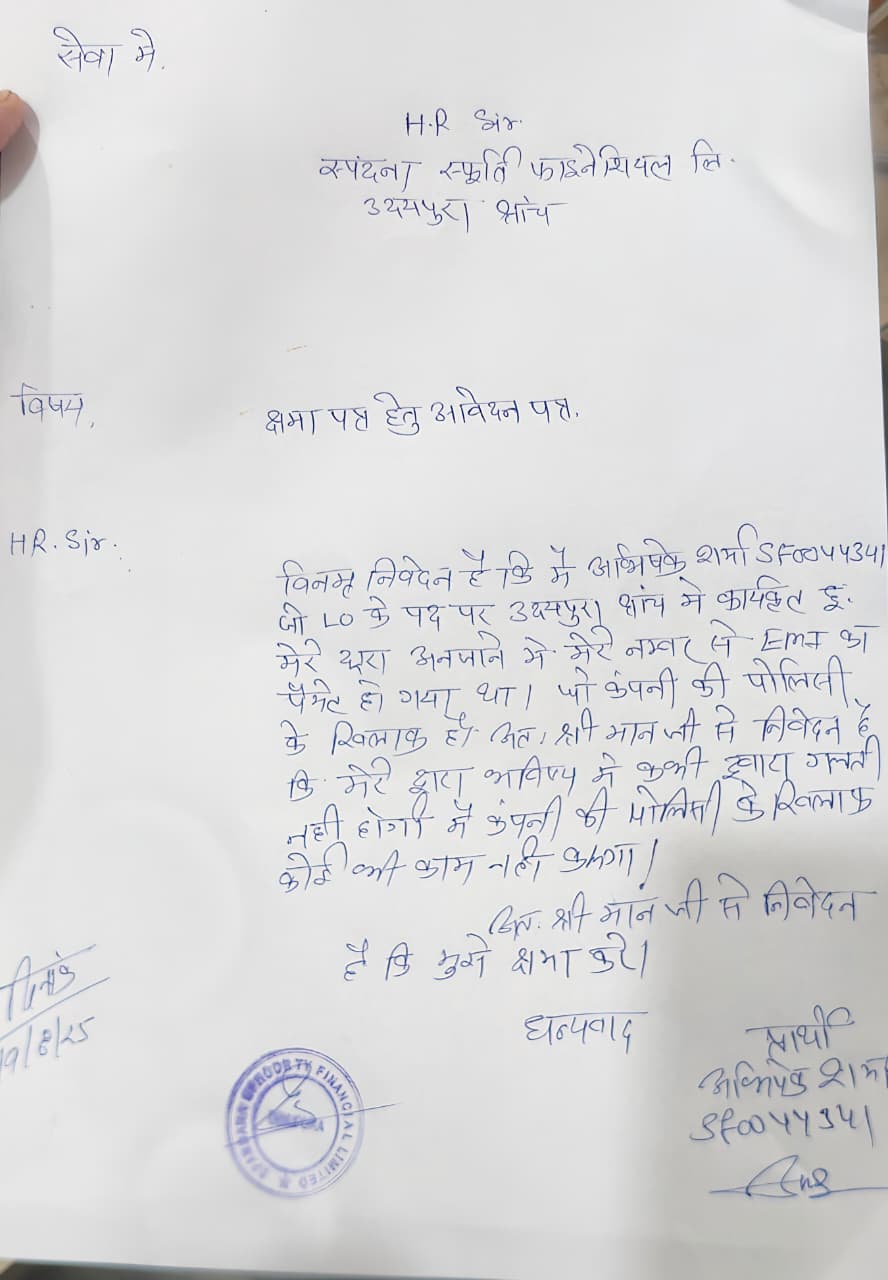 सेवा मे.
H.R Sir.
स्पंदना स्फूर्ति फाइनेशियल लि.
उदयपुरा ब्रांच
विषय,
क्षमा पत्र हेतु आवेदन पत्र.
HR. Sir.
विनम्र निवेदन है कि मै अभिषेक शर्मा SF0044341
जो LO के पद पर उदयपुरा ब्रांच मे कार्यकृत हूं.
मेरे द्वारा अनजाने मे मेरे नम्बर से EMI का
पैमेंट हो गया था। जो कंपनी की पोलिसी
के खिलाफ है। अतः श्री मान जी से निवेदन है
कि मेरे द्वारा भविष्य मे कभी दुवारा गलती
नही होगी मैं कंपनी की पोलिसी के खिलाफ
कोई भी काम नही करूगा।
अतः श्री मान जी से निवेदन
है कि मुझे क्षमा करे।
धन्यवाद
दिनांक
19/8/25
प्रार्थी
अभिषेक शर्मा
SF0044341
SPANDANA SPHOORTY FINANCIAL LIMITED